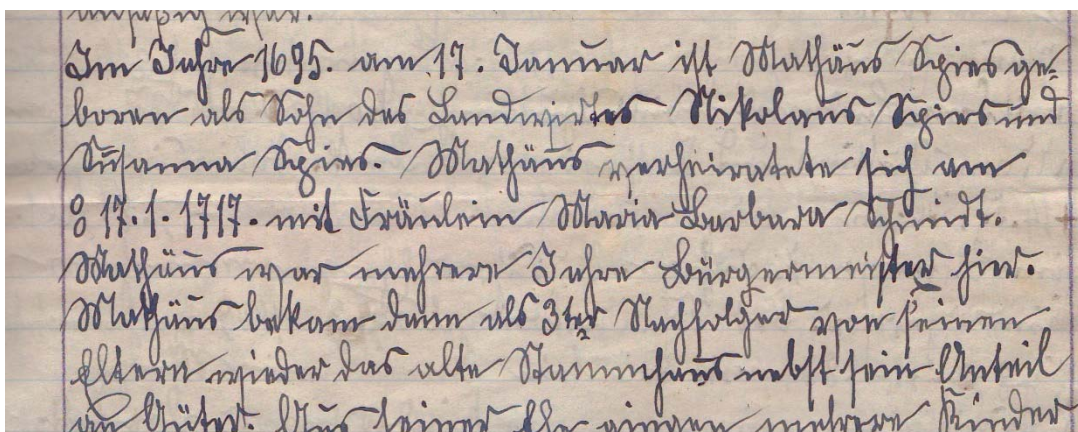 ansäßig war.
Im Jahre 1695. am 17. Januar ist Mathäus Spies ge-
boren als Sohn des Landwirtes Nikolaus Spies und
Susanna Spies. Mathäus verheiratete sich am
8 17.1.1717. mit Fräulein Maria Barbara Schmidt.
Mathäus war mehrere Jahre Bürgermeister hier.
Mathäus bekam dann als 3ter Nachfolger von seinen
Eltern wieder das alte Stammhaus nebst sein Anteil
an Güter. Aus seiner Ehe gingen mehrere Kinder